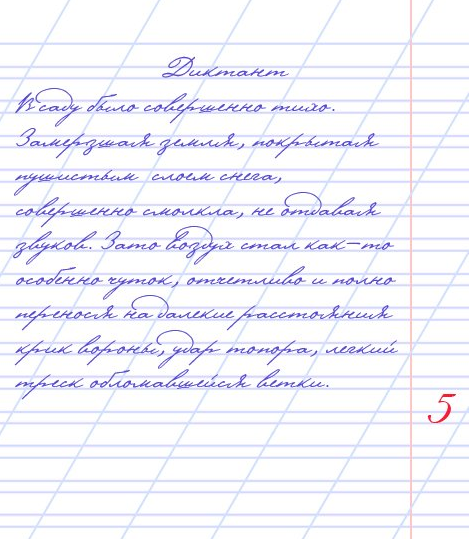 Диктант
В саду было совершенно тихо.
Замерзшая земля, покрытая
пушистым слоем снега,
совершенно смолкла, не отдавая
звуков. Зато воздух стал как-то
особенно чуток, отчетливо и полно
перенося на далекие расстояния
крик вороны, удар топора, легкий
треск обломавшейся ветки.
5